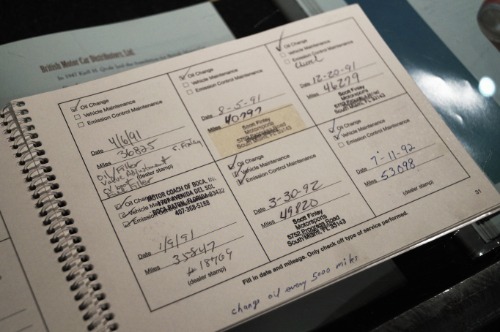 British Motor Car Distributors, Ltd.
Oil Change
Vehicle Maintenance
Emission Control Maintenance
4/6/91
Date
36825
Miles
Oil/Filter
Valve Adjustment
(dealer stamp)
Oil Change
Vehicle Maintenance
Emission Control Maintenance
8-5-91
Date
Miles 40797
Scott Finlay
Motorsports
Oil Change
Vehicle Maintenance
Emission Control Maintenance
12-20-91
Date
Miles 46279
Scott Finlay
Motorsports
Oil Change
Vehicle
Emission
MOTOR COACH OF BOCA, INC.
BOCA RATON, FLORIDA 33432
1/9/91
Date
35847
Miles
# 18769
(dealer stamp)
Oil Change
Vehicle Maintenance
Emission Control Maintenance
3-30-92
Date
49820
Miles
Scott Finlay
Motorsports
5752 Progress Road
South Miami, FL 33143
Oil Change
Vehicle Maintenance
Emission Control Maintenance
7-11-92
Date
53098
Miles
(dealer stamp)
31
Fill in date and mileage. Only check off type of service performed.
change oil every 5000 miles